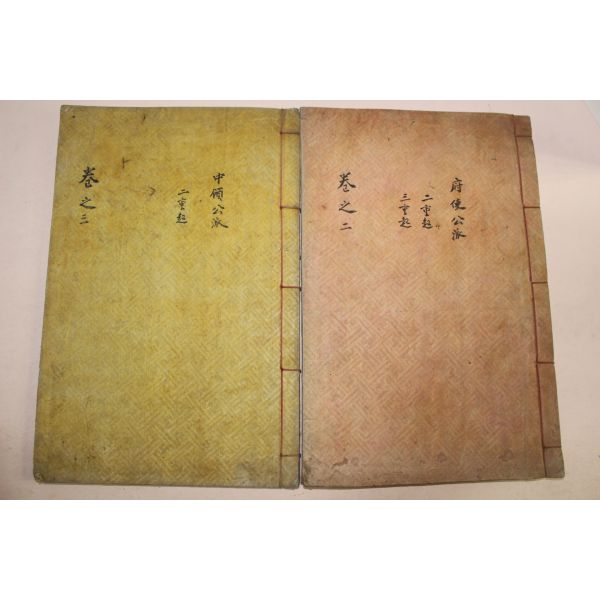 府使公派
二重起
三重起
卷之二
中領公派
二重起
卷之三